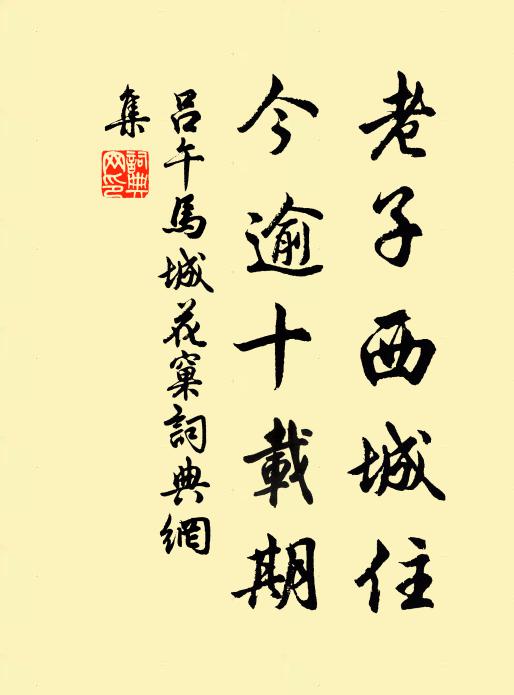 老子西城住
今逾十載期
呂午馬城花窠詞典網
集
詞典網印